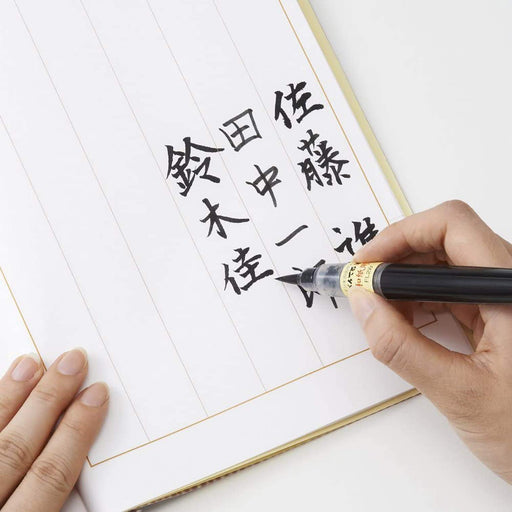 佐藤
田中一郎
鈴木佳